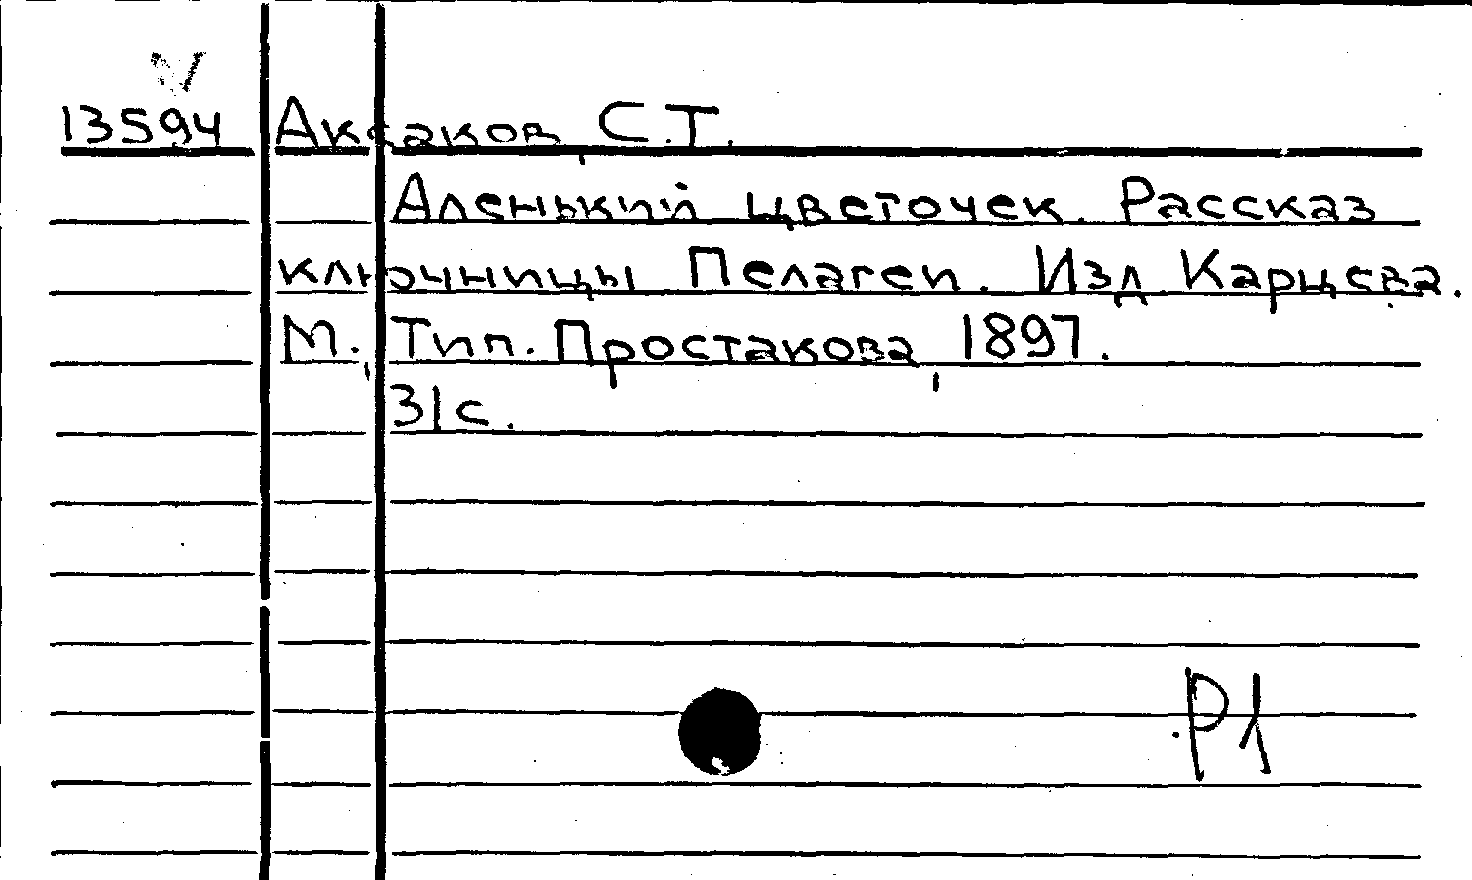 13594 Аксаков, С.Т.
Аленький цветочек. Рассказ
ключницы Пелагеи. Изд Карцева.
М., Тип. Простакова, 1897.
31с.